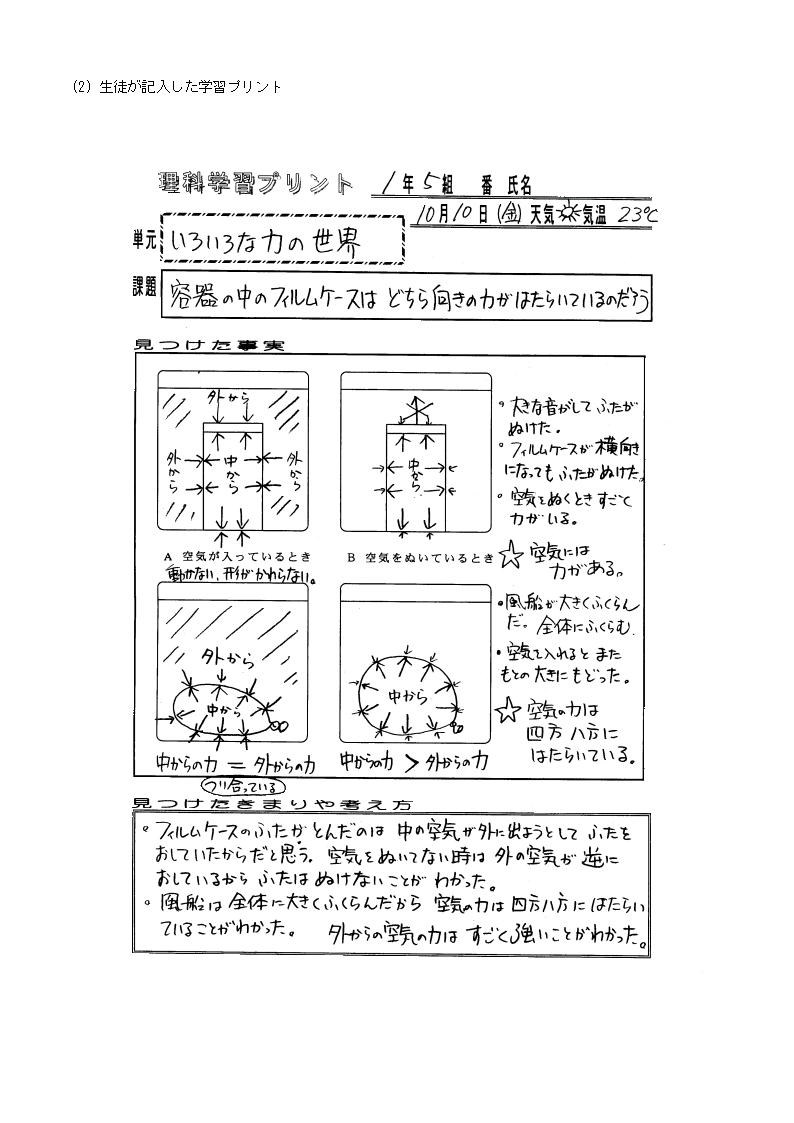 (2) 生徒が記入した学習プリント
理科学習プリント 1年5組 番 氏名
10月10日(金) 天気☀気温 23℃
単元 いろいろな力の世界
課題 容器の中のフィルムケースは どちら向きの力がはたらいているのだろう
見つけた事実
外から
外から 中から 外から
中から
A 空気が入っているとき
動かない、形がかわらない。
B 空気をぬいているとき
。大きな音がして ふたが
ぬけた。
。フィルムケースが横向き
になっても ふたがぬけた。
。空気をぬくとき すごく
力がいる。
☆ 空気には
力がある。
外から
中から
中からの力 = 外からの力
つり合っている
中から
中からの力 > 外からの力
・風船が大きくふくらん
だ。 全体にふくらむ
・空気を入れると また
もとの大きにもどった。
☆ 空気の力は
四方八方に
はたらいている。
見つけたきまりや考え方
。フィルムケースのふたがとんだのは 中の空気が外に出ようとして ふたを
おしていたからだと思う。 空気をぬいてない時は 外の空気が 逆に
おしているから ふたは ぬけないことが わかった。
。風船は 全体に大きくふくらんだから 空気の力は 四方八方に はたらい
ていることがわかった。 外からの空気の力は すごく強いことがわかった。